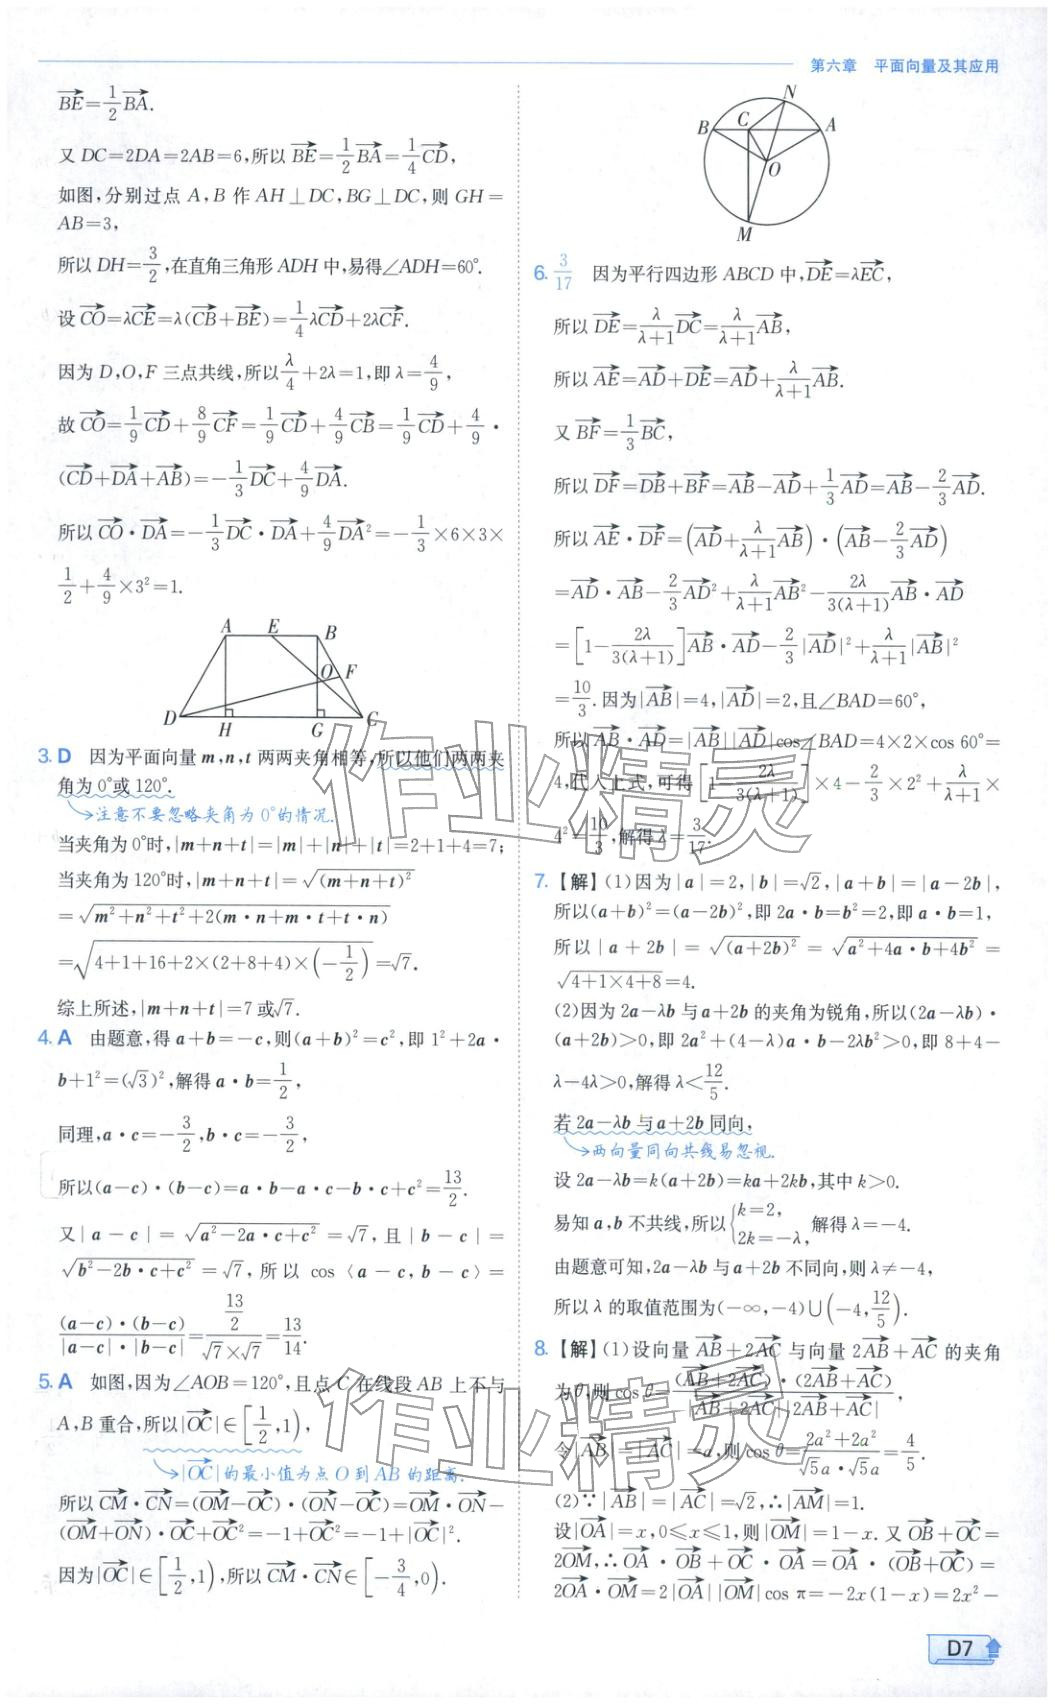 第六章 平面向量及其应用
$\overrightarrow{BE}=\frac{1}{2}\overrightarrow{BA}$.
又 DC=2DA=2AB=6,所以 $\overrightarrow{BE}=\frac{1}{2}\overrightarrow{BA}=\frac{1}{4}\overrightarrow{CD}$,
如图,分别过点 A,B 作 AH⊥DC,BG⊥DC,则 GH=
AB=3,
所以 DH=$\frac{3}{2}$,在直角三角形 ADH 中,易得∠ADH=60°.
设 $\overrightarrow{CO}=λ\overrightarrow{CE}=λ(\overrightarrow{CB}+\overrightarrow{BE})=\frac{1}{4}λ\overrightarrow{CD}+2λ\overrightarrow{CF}$.
因为 D,O,F 三点共线,所以 $\frac{λ}{4}+2λ=1$,即 $λ=\frac{4}{9}$,
故 $\overrightarrow{CO}=\frac{1}{9}\overrightarrow{CD}+\frac{8}{9}\overrightarrow{CF}=\frac{1}{9}\overrightarrow{CD}+\frac{4}{9}\overrightarrow{CB}=\frac{1}{9}\overrightarrow{CD}+\frac{4}{9}$·
$(\overrightarrow{CD}+\overrightarrow{DA}+\overrightarrow{AB})=-\frac{1}{3}\overrightarrow{DC}+\frac{4}{9}\overrightarrow{DA}$.
所以 $\overrightarrow{CO}·\overrightarrow{DA}=-\frac{1}{3}\overrightarrow{DC}·\overrightarrow{DA}+\frac{4}{9}\overrightarrow{DA}^2=-\frac{1}{3}×6×3×$
$\frac{1}{2}+\frac{4}{9}×3^2=1$.
A E B
O F
D H G C
3. D 因为平面向量 m,n,t 两两夹角相等,所以他们两两夹
角为 0°或 120°.
→注意不要忽略夹角为 0°的情况.
当夹角为 0°时,|m+n+t|=|m|+|n|+|t|=2+1+4=7;
当夹角为 120°时,|m+n+t|=$\sqrt{(m+n+t)^2}$
=$\sqrt{m^2+n^2+t^2+2(m·n+m·t+t·n)}$
=$\sqrt{4+1+16+2×(2+8+4)×\left(-\frac{1}{2}\right)}=\sqrt{7}$.
综上所述,|m+n+t|=7 或$\sqrt{7}$.
4. A 由题意,得 a+b=-c,则$(a+b)^2=c^2$,即 $1^2+2a·$
$b+1^2=(\sqrt{3})^2$,解得 $a·b=\frac{1}{2}$,
同理,$a·c=-\frac{3}{2}$,$b·c=-\frac{3}{2}$,
所以$(a-c)·(b-c)=a·b-a·c-b·c+c^2=\frac{13}{2}$.
又|a-c|=$\sqrt{a^2-2a·c+c^2}=\sqrt{7}$,且|b-c|=
$\sqrt{b^2-2b·c+c^2}=\sqrt{7}$,所以 cos〈a-c,b-c〉=
$\frac{(a-c)·(b-c)}{|a-c|·|b-c|}=\frac{\frac{13}{2}}{\sqrt{7}×\sqrt{7}}=\frac{13}{14}$.
5. A 如图,因为∠AOB=120°,且点 C 在线段 AB 上不与
A,B 重合,所以$|\overrightarrow{OC}|∈\left[\frac{1}{2},1\right)$,
→$|\overrightarrow{OC}|$的最小值为点 O 到 AB 的距离.
所以 $\overrightarrow{CM}·\overrightarrow{CN}=(\overrightarrow{OM}-\overrightarrow{OC})·(\overrightarrow{ON}-\overrightarrow{OC})=\overrightarrow{OM}·\overrightarrow{ON}-$
$(\overrightarrow{OM}+\overrightarrow{ON})·\overrightarrow{OC}+\overrightarrow{OC}^2=-1+\overrightarrow{OC}^2=-1+|\overrightarrow{OC}|^2$.
因为$|\overrightarrow{OC}|∈\left[\frac{1}{2},1\right)$,所以 $\overrightarrow{CM}·\overrightarrow{CN}∈\left[-\frac{3}{4},0\right)$.
N
B C A
O
M
6. $\frac{3}{17}$ 因为平行四边形 ABCD 中,$\overrightarrow{DE}=λ\overrightarrow{EC}$,
所以 $\overrightarrow{DE}=\frac{λ}{λ+1}\overrightarrow{DC}=\frac{λ}{λ+1}\overrightarrow{AB}$,
所以 $\overrightarrow{AE}=\overrightarrow{AD}+\overrightarrow{DE}=\overrightarrow{AD}+\frac{λ}{λ+1}\overrightarrow{AB}$.
又 $\overrightarrow{BF}=\frac{1}{3}\overrightarrow{BC}$,
所以 $\overrightarrow{DF}=\overrightarrow{DB}+\overrightarrow{BF}=\overrightarrow{AB}-\overrightarrow{AD}+\frac{1}{3}\overrightarrow{AD}=\overrightarrow{AB}-\frac{2}{3}\overrightarrow{AD}$.
所以 $\overrightarrow{AE}·\overrightarrow{DF}=\left(\overrightarrow{AD}+\frac{λ}{λ+1}\overrightarrow{AB}\right)·\left(\overrightarrow{AB}-\frac{2}{3}\overrightarrow{AD}\right)$
$=\overrightarrow{AD}·\overrightarrow{AB}-\frac{2}{3}\overrightarrow{AD}^2+\frac{λ}{λ+1}\overrightarrow{AB}^2-\frac{2λ}{3(λ+1)}\overrightarrow{AB}·\overrightarrow{AD}$
$=\left[1-\frac{2λ}{3(λ+1)}\right]\overrightarrow{AB}·\overrightarrow{AD}-\frac{2}{3}|\overrightarrow{AD}|^2+\frac{λ}{λ+1}|\overrightarrow{AB}|^2$
$=\frac{10}{3}$.因为$|\overrightarrow{AB}|=4$,$|\overrightarrow{AD}|=2$,且∠BAD=60°,
所以 $\overrightarrow{AB}·\overrightarrow{AD}=|\overrightarrow{AB}||\overrightarrow{AD}|$cos∠BAD=4×2×cos 60°=
4,代入上式,可得 $\left[1-\frac{2λ}{3(λ+1)}\right]×4-\frac{2}{3}×2^2+\frac{λ}{λ+1}×$
$4^2=\frac{10}{3}$,解得 $λ=\frac{3}{17}$.
7.【解】(1)因为|a|=2,|b|=$\sqrt{2}$,|a+b|=|a-2b|,
所以$(a+b)^2=(a-2b)^2$,即 $2a·b=b^2=2$,即 a·b=1,
所以|a+2b|=$\sqrt{(a+2b)^2}=\sqrt{a^2+4a·b+4b^2}=$
$\sqrt{4+1×4+8}=4$.
(2)因为 2a-λb 与 a+2b 的夹角为锐角,所以(2a-λb)·
(a+2b)>0,即 $2a^2+(4-λ)a·b-2λb^2>0$,即 8+4-
λ-4λ>0,解得 $λ<\frac{12}{5}$.
若 2a-λb 与 a+2b 同向,
→两向量同向共线易忽视.
设 2a-λb=k(a+2b)=ka+2kb,其中 k>0.
易知 a,b 不共线,所以$\begin{cases}k=2,\\2k=-λ,\end{cases}$解得 λ=-4.
由题意可知,2a-λb 与 a+2b 不同向,则 λ≠-4,
所以 λ 的取值范围为$(-∞,-4)∪\left(-4,\frac{12}{5}\right)$.
8.【解】(1)设向量 $\overrightarrow{AB}+2\overrightarrow{AC}$ 与向量 $2\overrightarrow{AB}+\overrightarrow{AC}$ 的夹角
为 θ,则 cos θ=$\frac{(\overrightarrow{AB}+2\overrightarrow{AC})·(2\overrightarrow{AB}+\overrightarrow{AC})}{|\overrightarrow{AB}+2\overrightarrow{AC}||2\overrightarrow{AB}+\overrightarrow{AC}|}$,
令$|\overrightarrow{AB}|=|\overrightarrow{AC}|=a$,则 cos θ=$\frac{2a^2+2a^2}{\sqrt{5}a·\sqrt{5}a}=\frac{4}{5}$.
(2)∵$|\overrightarrow{AB}|=|\overrightarrow{AC}|=\sqrt{2}$,∴$|\overrightarrow{AM}|=1$.
设$|\overrightarrow{OA}|=x$,0≤x≤1,则$|\overrightarrow{OM}|=1-x$.又 $\overrightarrow{OB}+\overrightarrow{OC}=$
$2\overrightarrow{OM}$,∴$\overrightarrow{OA}·\overrightarrow{OB}+\overrightarrow{OC}·\overrightarrow{OA}=\overrightarrow{OA}·(\overrightarrow{OB}+\overrightarrow{OC})=$
$2\overrightarrow{OA}·\overrightarrow{OM}=2|\overrightarrow{OA}||\overrightarrow{OM}|$cos π=$-2x(1-x)=2x^2-$
作业精灵
作业精灵
D7